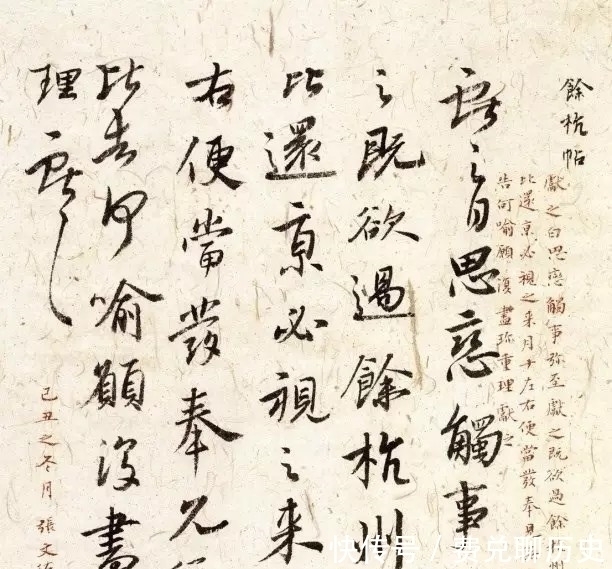 餘杭帖
獻之白思戀觸事弥至獻之既欲過餘杭州
比還京必視之来月十左右便當發奉見
告何喻願復盡珍重理獻之
獻之白思戀觸事
之既欲過餘杭州
比還京必視之来
右便當發奉
比告何喻願復盡
理獻之
己丑之冬月 張文
快传号 / 费兑聊历史